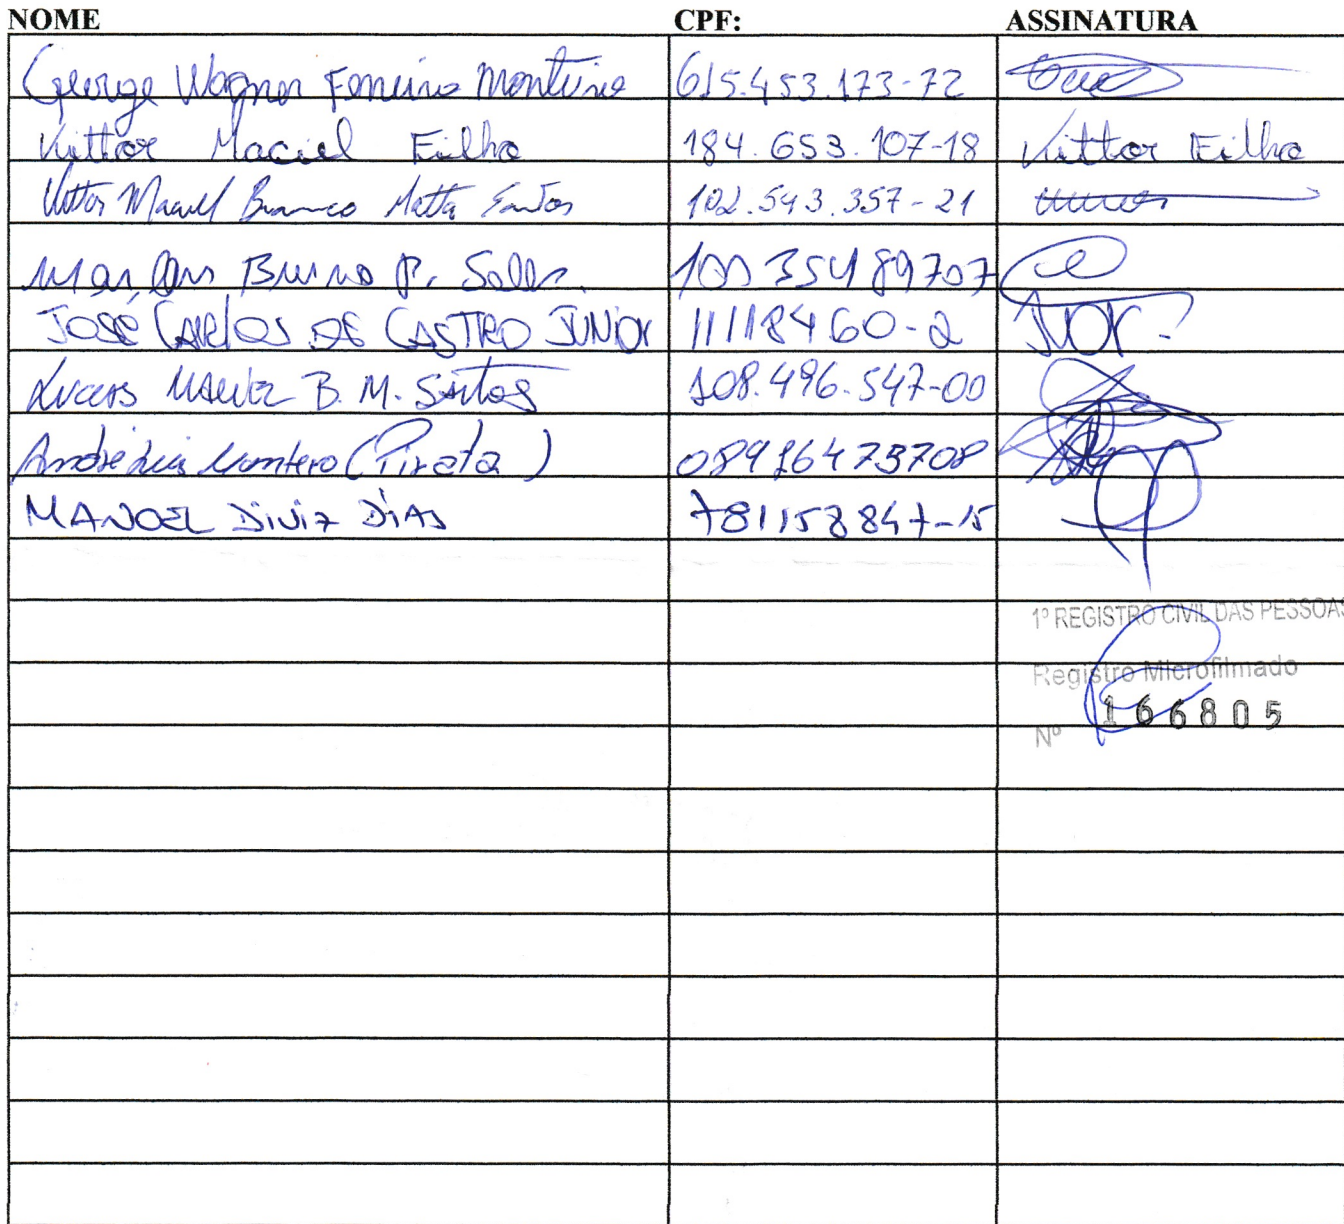 NOME CPF: ASSINATURA
George Wagner Ferreira Monteiro 615.453.173-72
Vittor Maciel Filho 184.653.107-18 Vittor Filho
Vittor Maciel Branco Matta Santos 102.543.357-21
Bruno P. Salles 10035489707
JOSÉ CARLOS DE CASTRO JUNIOR 11118460-2
Luccas B. M. Santos 108.496.547-00
André Luis Monteiro (Pirata) 08916473708
MANOEL DINIZ DIAS 781158847-15
1º REGISTRO CIVIL DAS PESSOAS
Registro Microfilmado
Nº 166805